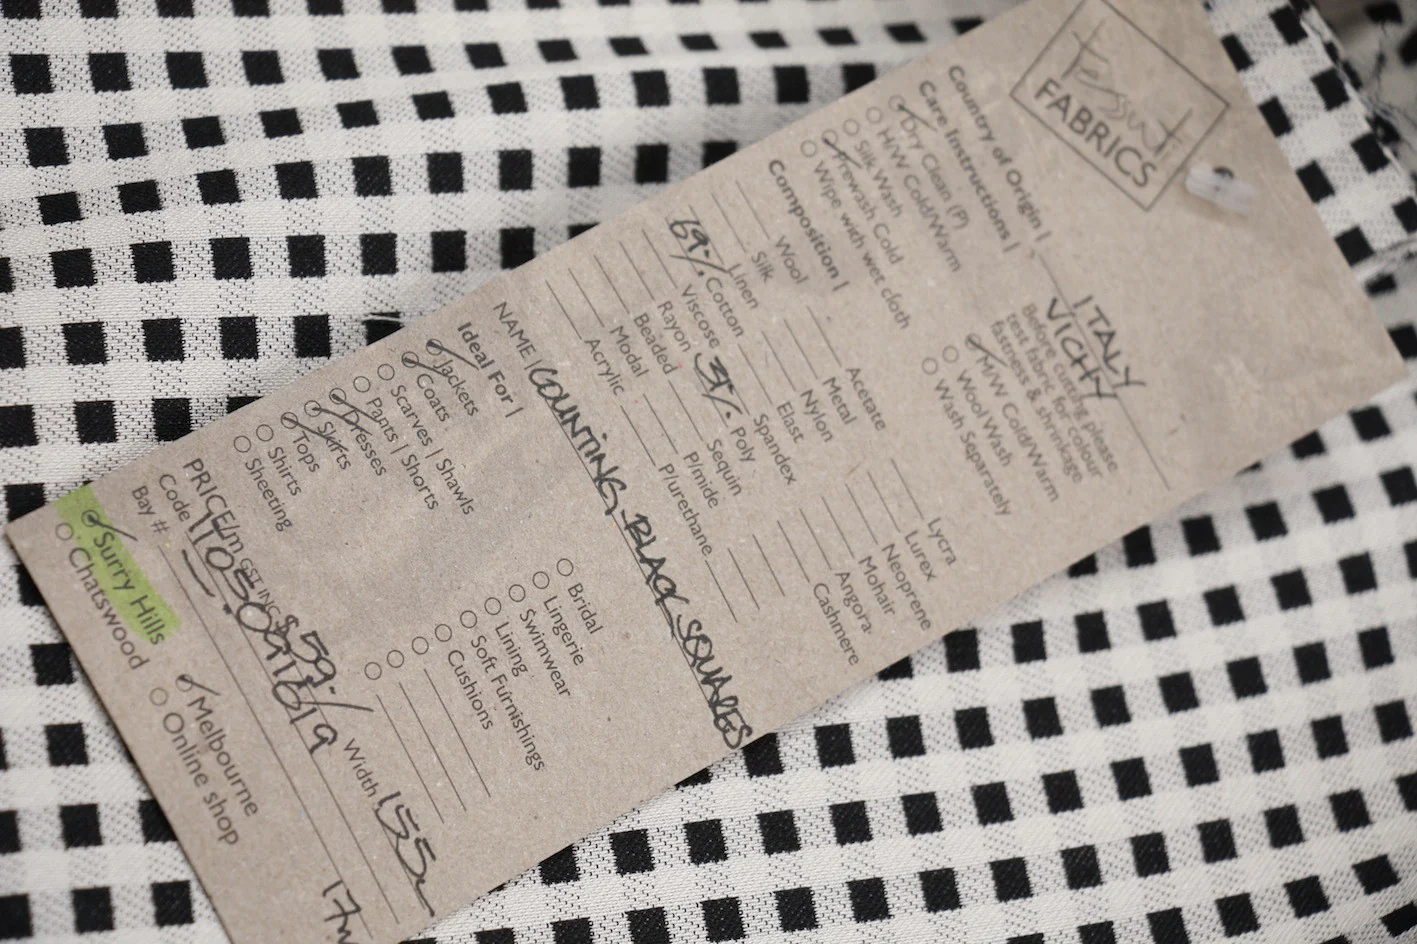 Tessuti
FABRICS
Country of Origin | ITALY
VICHY
Care Instructions |
Before cutting please
test fabric for colour
fastness & shrinkage
Dry Clean (P)
H/W Cold/Warm
Silk Wash
Prewash Cold
Wipe with wet cloth
M/W Cold/Warm
Wool Wash
Wash Separately
Composition |
Wool
Silk
Linen
69% Cotton
Viscose
Rayon
Beaded
Modal
Acrylic
Acetate
Metal
Nylon
Elast
Spandex
31% Poly
Sequin
P/mide
P/urethane
Lycra
Lurex
Neoprene
Mohair
Angora
Cashmere
NAME | COUNTING BLACK SQUARES
Ideal For |
Jackets
Coats
Scarves | Shawls
Pants | Shorts
Dresses
Skirts
Tops
Shirts
Sheeting
Bridal
Lingerie
Swimwear
Lining
Soft Furnishings
Cushions
PRICE/m GST INC $59./ Width 155
Code
Bay #
Surry Hills
Chatswood
Melbourne
Online shop